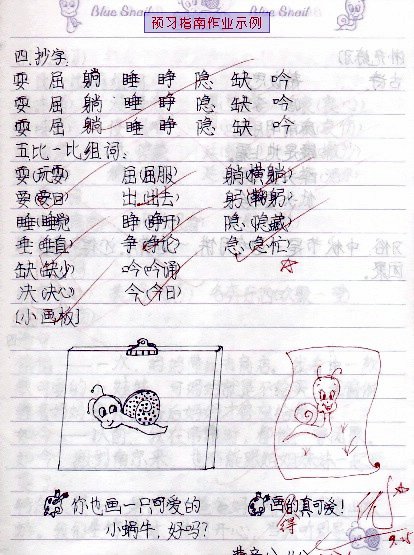 Blue Snail
预习指南作业示例
Blue Snail
四.抄字:
耍 屈 躺 睡 睁 隐 缺 吟
耍 屈 躺 睡 睁 隐 缺 吟
耍 屈 躺 睡 睁 隐 缺 吟
五比一比组词:
耍(玩耍) 屈(屈服) 躺(横躺)
要(要日) 出(出去) 躬(鞠躬)
睡(睡觉) 睁(睁开) 隐(隐藏)
垂(垂直) 争(争论) 急(急忙)
缺(缺少) 吟(吟诵)
决(决心) 今(今日)
[小画板]
你也画一只可爱的
小蜗牛,好吗?
画的真可爱!
得